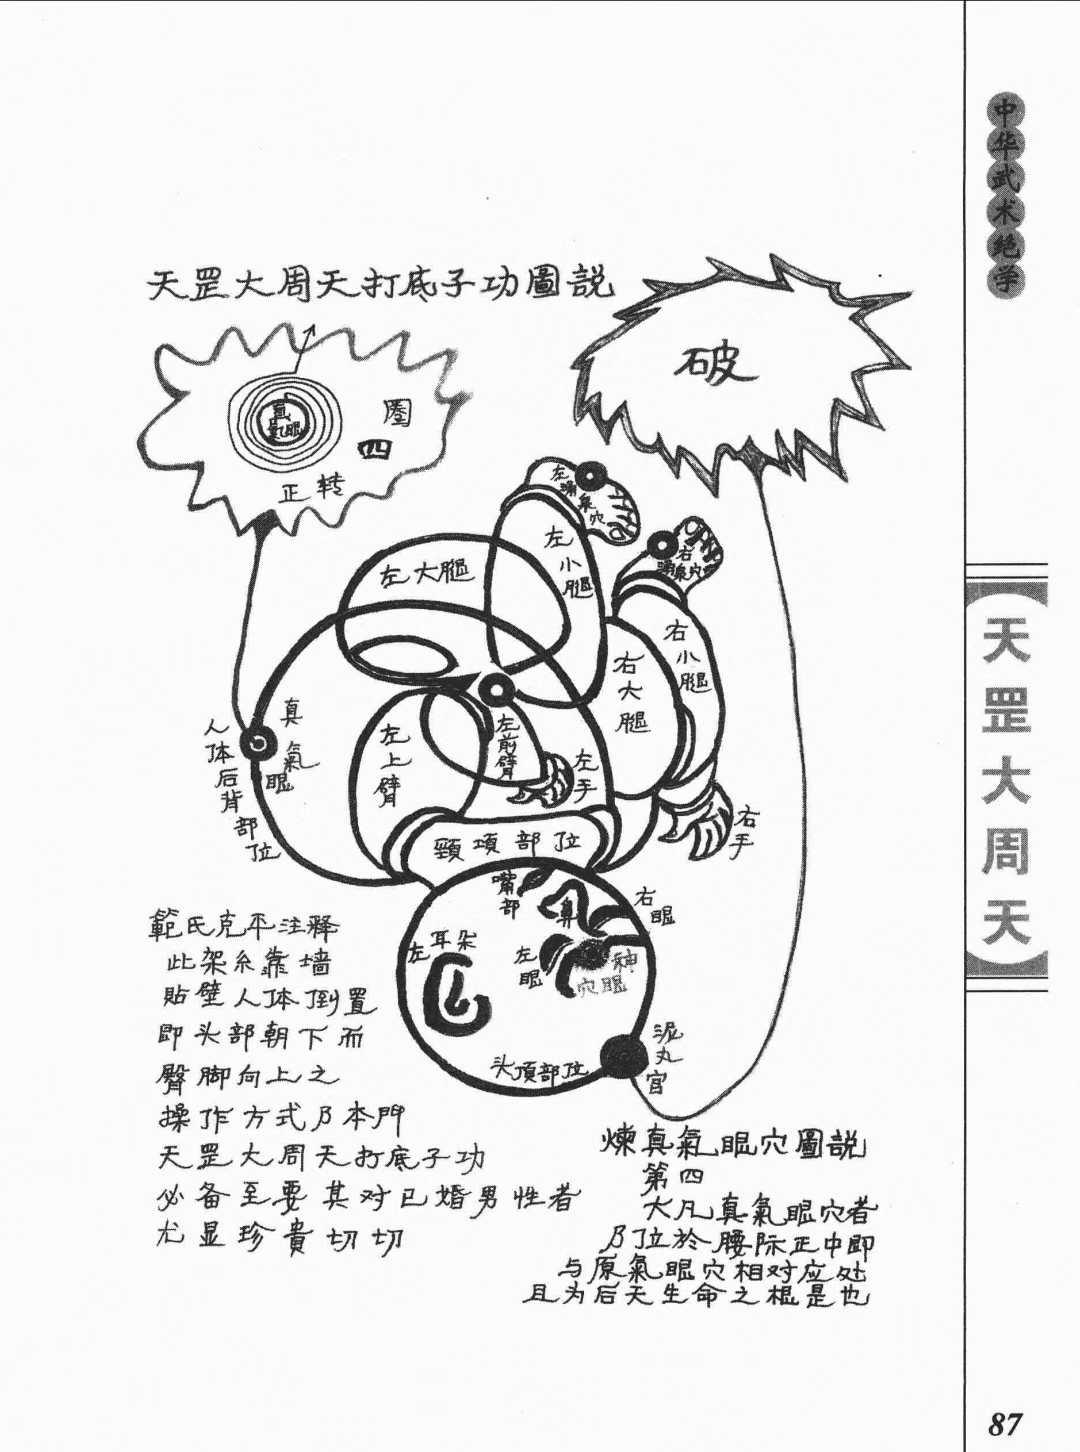 中华武术绝学
天罡大周天
天罡大周天打底子功圖説
破
真氣眼
圈四
正转
左涌泉穴
右涌泉穴
左大腿
左小腿
右小腿
右大腿
真氣眼
人体后背部位
左上臂
左前臂
左手
右手
頸項部位
嘴部
鼻
右眼
左耳朵
左眼
神眼穴
头頂部位
泥丸宫
範氏克平注釋
此架糸靠墙
貼壁人体倒置
即头部朝下而
臀脚向上之
操作方式乃本門
天罡大周天打底子功
必备至要其对已婚男性者
尤显珍貴切切
煉真氣眼穴圖説
第四
大凡真氣眼穴者
乃位於腰际正中即
与原氣眼穴相对应处
且为后天生命之根是也
87